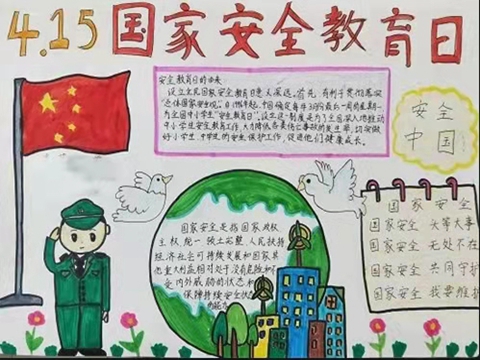 4.15国家安全教育日
安全教育日的由来:
设立全民国家安全教育日意义深远。首先,有利于贯彻落实
"总体国家安全观。自1996年起,中国确定每年3月份最后一周的星期一
为全国中小学生"安全教育日",设立这一制度是为了全国深入地推动
中小学生安全教育工作,大力降低各类伤亡事故的发生率,切实做
好中小学生的安全保护工作,促进他们健康成长。
安全
中国
国家安全是指国家政权
主权 统一 领土完整 人民扶持
经济社会可持续发展和国家其
他重大利益相对处于没有危险和不
受内外威胁的状态
保障持续安全状态
的能力
国家安全
国家安全 头等大事
国家安全 无处不在
国家安全 共同守护
国家安全 我要维护